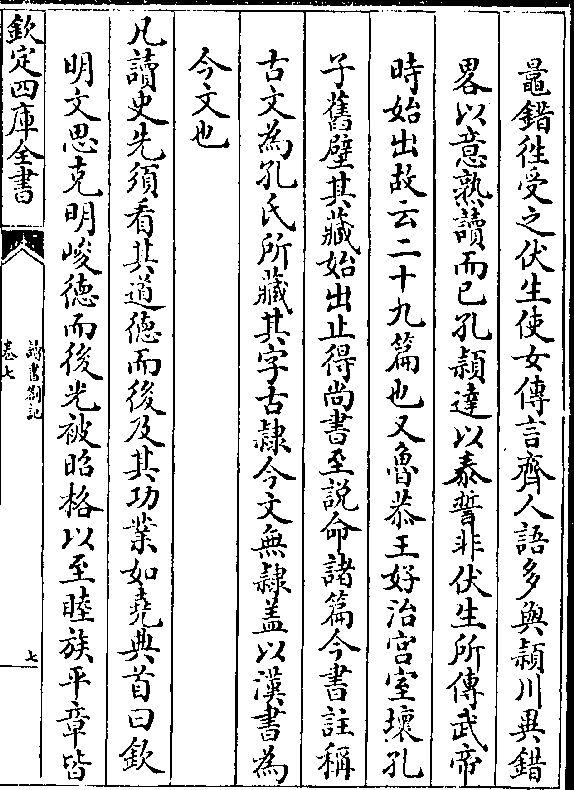 鼂錯徃受之伏生使女傳言齊人語多與潁川異錯
畧以意熟讀而已孔潁達以泰誓非伏生所傳武帝
時始出故云二十九篇也又魯恭王好治宫室壞孔
子舊壁其藏始出止得尚書至説命諸篇今書註稱
古文為孔氏所藏其字古隷今文無隷盖以漢書為
今文也
凡讀史先須看其道德而後及其功業如堯典首曰欽
明文思克明峻德而後光被昭格以至睦族平章皆
欽定四庫全書
卷七
七